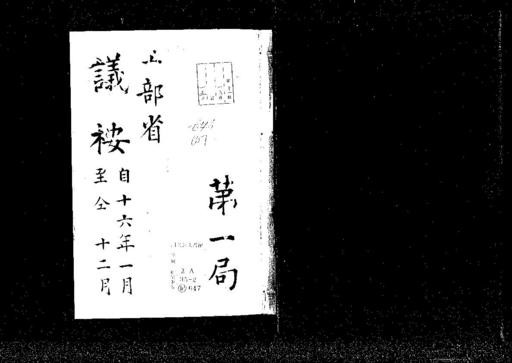 第一局
工部省
議按
自十六年一月
至仝 十二月
2A
35-2
647